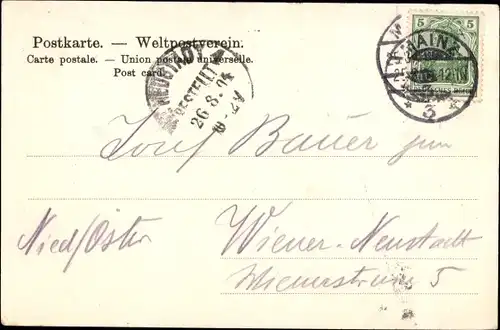 Postkarte. — Weltpostverein.
Carte postale. — Union postale universelle.
Post card.
NEUSTADT
BESTELLT
26.8.
MAINZ
12-1N
* 3 *
5 5
Josef Bauer jun
Nied/Öster
Wiener-Neustadt
Wienerstrass 5